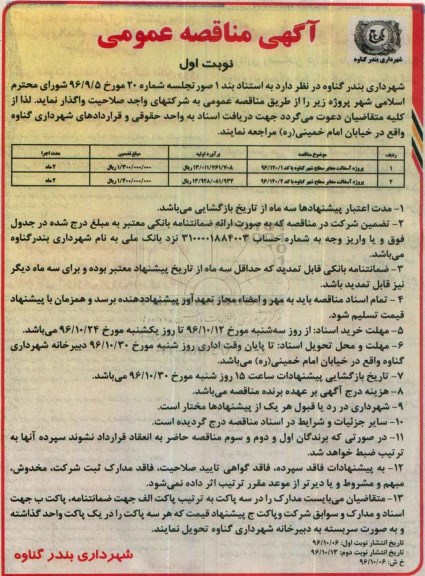 آگهی مناقصه عمومی
شهرداری بندر گناوه
نوبت اول
شهرداری بندر گناوه در نظر دارد به استناد بند ۱ صورتجلسه شماره ۲۰ مورخ ۹۶/۹/۵ شورای محترم
اسلامی شهر پروژه زیر را از طریق مناقصه عمومی به شرکتهای واجد صلاحیت واگذار نماید. لذا از
کلیه متقاضیان دعوت می‌گردد جهت دریافت اسناد به واحد حقوقی و قراردادهای شهرداری گناوه
واقع در خیابان امام خمینی(ره) مراجعه نمایند.
ردیف موضوع مناقصه برآورد اولیه مبلغ تضمین مدت اجرا
۱ پروژه آسفالت معابر سطح شهر گناوه با کد ۹۶/۱۲۰/۱ ۱۳/۰۱۱/۷۶۱/۷۰۸ ریال ۱/۳۰۰/۰۰۰/۰۰۰ ریال ۲ ماه
۲ پروژه آسفالت معابر سطح شهر گناوه با کد ۹۶/۱۲۰/۲ ۱۳/۹۴۸/۰۸۱/۹۳۴ ریال ۱/۴۰۰/۰۰۰/۰۰۰ ریال ۲ ماه
۱- مدت اعتبار پیشنهادها سه ماه از تاریخ بازگشایی می‌باشد.
۲- تضمین شرکت در مناقصه که به صورت ارائه ضمانتنامه بانکی معتبر به مبلغ درج شده در جدول
فوق و یا واریز وجه به شماره حساب ۳۱۰۰۰۰۱۸۸۴۰۰۳ نزد بانک ملی به نام شهرداری بندرگناوه
می‌باشد.
۳- ضمانتنامه بانکی قابل تمدید که حداقل سه ماه از تاریخ پیشنهاد معتبر بوده و برای سه ماه دیگر
نیز قابل تمدید باشد.
۴- تمام اسناد مناقصه باید به مهر و امضاء مجاز تعهدآور پیشنهاددهنده برسد و همزمان با پیشنهاد
قیمت تسلیم شود.
۵- مهلت خرید اسناد: از روز سه‌شنبه مورخ ۹۶/۱۰/۱۲ تا روز یکشنبه مورخ ۹۶/۱۰/۲۴ می‌باشد.
۶- مهلت و محل تحویل اسناد: تا پایان وقت اداری روز شنبه مورخ ۹۶/۱۰/۳۰ دبیرخانه شهرداری
گناوه واقع در خیابان امام خمینی(ره) می‌باشد.
۷- تاریخ بازگشایی پیشنهادات ساعت ۱۵ روز شنبه مورخ ۹۶/۱۰/۳۰ می‌باشد.
۸- هزینه درج آگهی بر عهده برنده مناقصه می‌باشد.
۹- شهرداری در رد یا قبول هر یک از پیشنهادها مختار است.
۱۰- سایر جزئیات و شرایط در اسناد مناقصه درج گردیده است.
۱۱- در صورتی که برندگان اول و دوم و سوم مناقصه حاضر به انعقاد قرارداد نشوند سپرده آنها به
ترتیب ضبط خواهد شد.
۱۲- به پیشنهادات فاقد سپرده، فاقد گواهی تایید صلاحیت، فاقد مدارک ثبت شرکت، مخدوش،
مبهم و مشروط و یا دیرتر از موعد مقرر ترتیب اثر داده نمی‌شود.
۱۳- متقاضیان می‌بایست مدارک را در سه پاکت به ترتیب پاکت الف جهت ضمانتنامه، پاکت ب جهت
اسناد و مدارک و سوابق شرکت و پاکت ج پیشنهاد قیمت که هر سه پاکت را در یک پاکت واحد گذاشته
و به صورت سربسته به دبیرخانه شهرداری گناوه تحویل نمایند.
تاریخ انتشار نوبت اول: ۹۶/۱۰/۰۶
تاریخ انتشار نوبت دوم: ۹۶/۱۰/۱۳
خ ش: ۹۶/۱۰/۰۶
شهرداری بندر گناوه